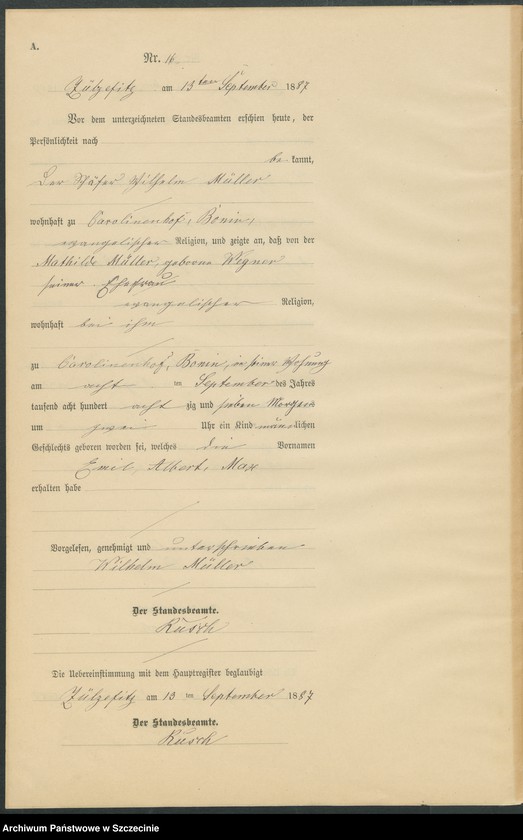 A.
Nr. 16.
Zülzefitz am 13ten September 1887
Vor dem unterzeichneten Standesbeamten erschien heute, der
Persönlichkeit nach
be kannt,
Der Schäfer Wilhelm Müller
wohnhaft zu Carolinenhof, Bonin,
evangelischer Religion, und zeigte an, daß von der
Mathilde Müller, geborene Wegner
seiner Ehefrau
evangelischer Religion,
wohnhaft bei ihm
zu Carolinenhof, Bonin, in seiner Wohnung
am acht ten September des Jahres
tausend acht hundert acht zig und sieben Morgens
um zwei Uhr ein Kind männlichen
Geschlechts geboren worden sei, welches die Vornamen
Emil, Albert, Max
erhalten habe
Vorgelesen, genehmigt und unterschrieben
Wilhelm Müller
Der Standesbeamte.
Rusch
Die Uebereinstimmung mit dem Hauptregister beglaubigt
Zülzefitz am 13 ten September 1887
Der Standesbeamte.
Rusch
Archiwum Państwowe w Szczecinie